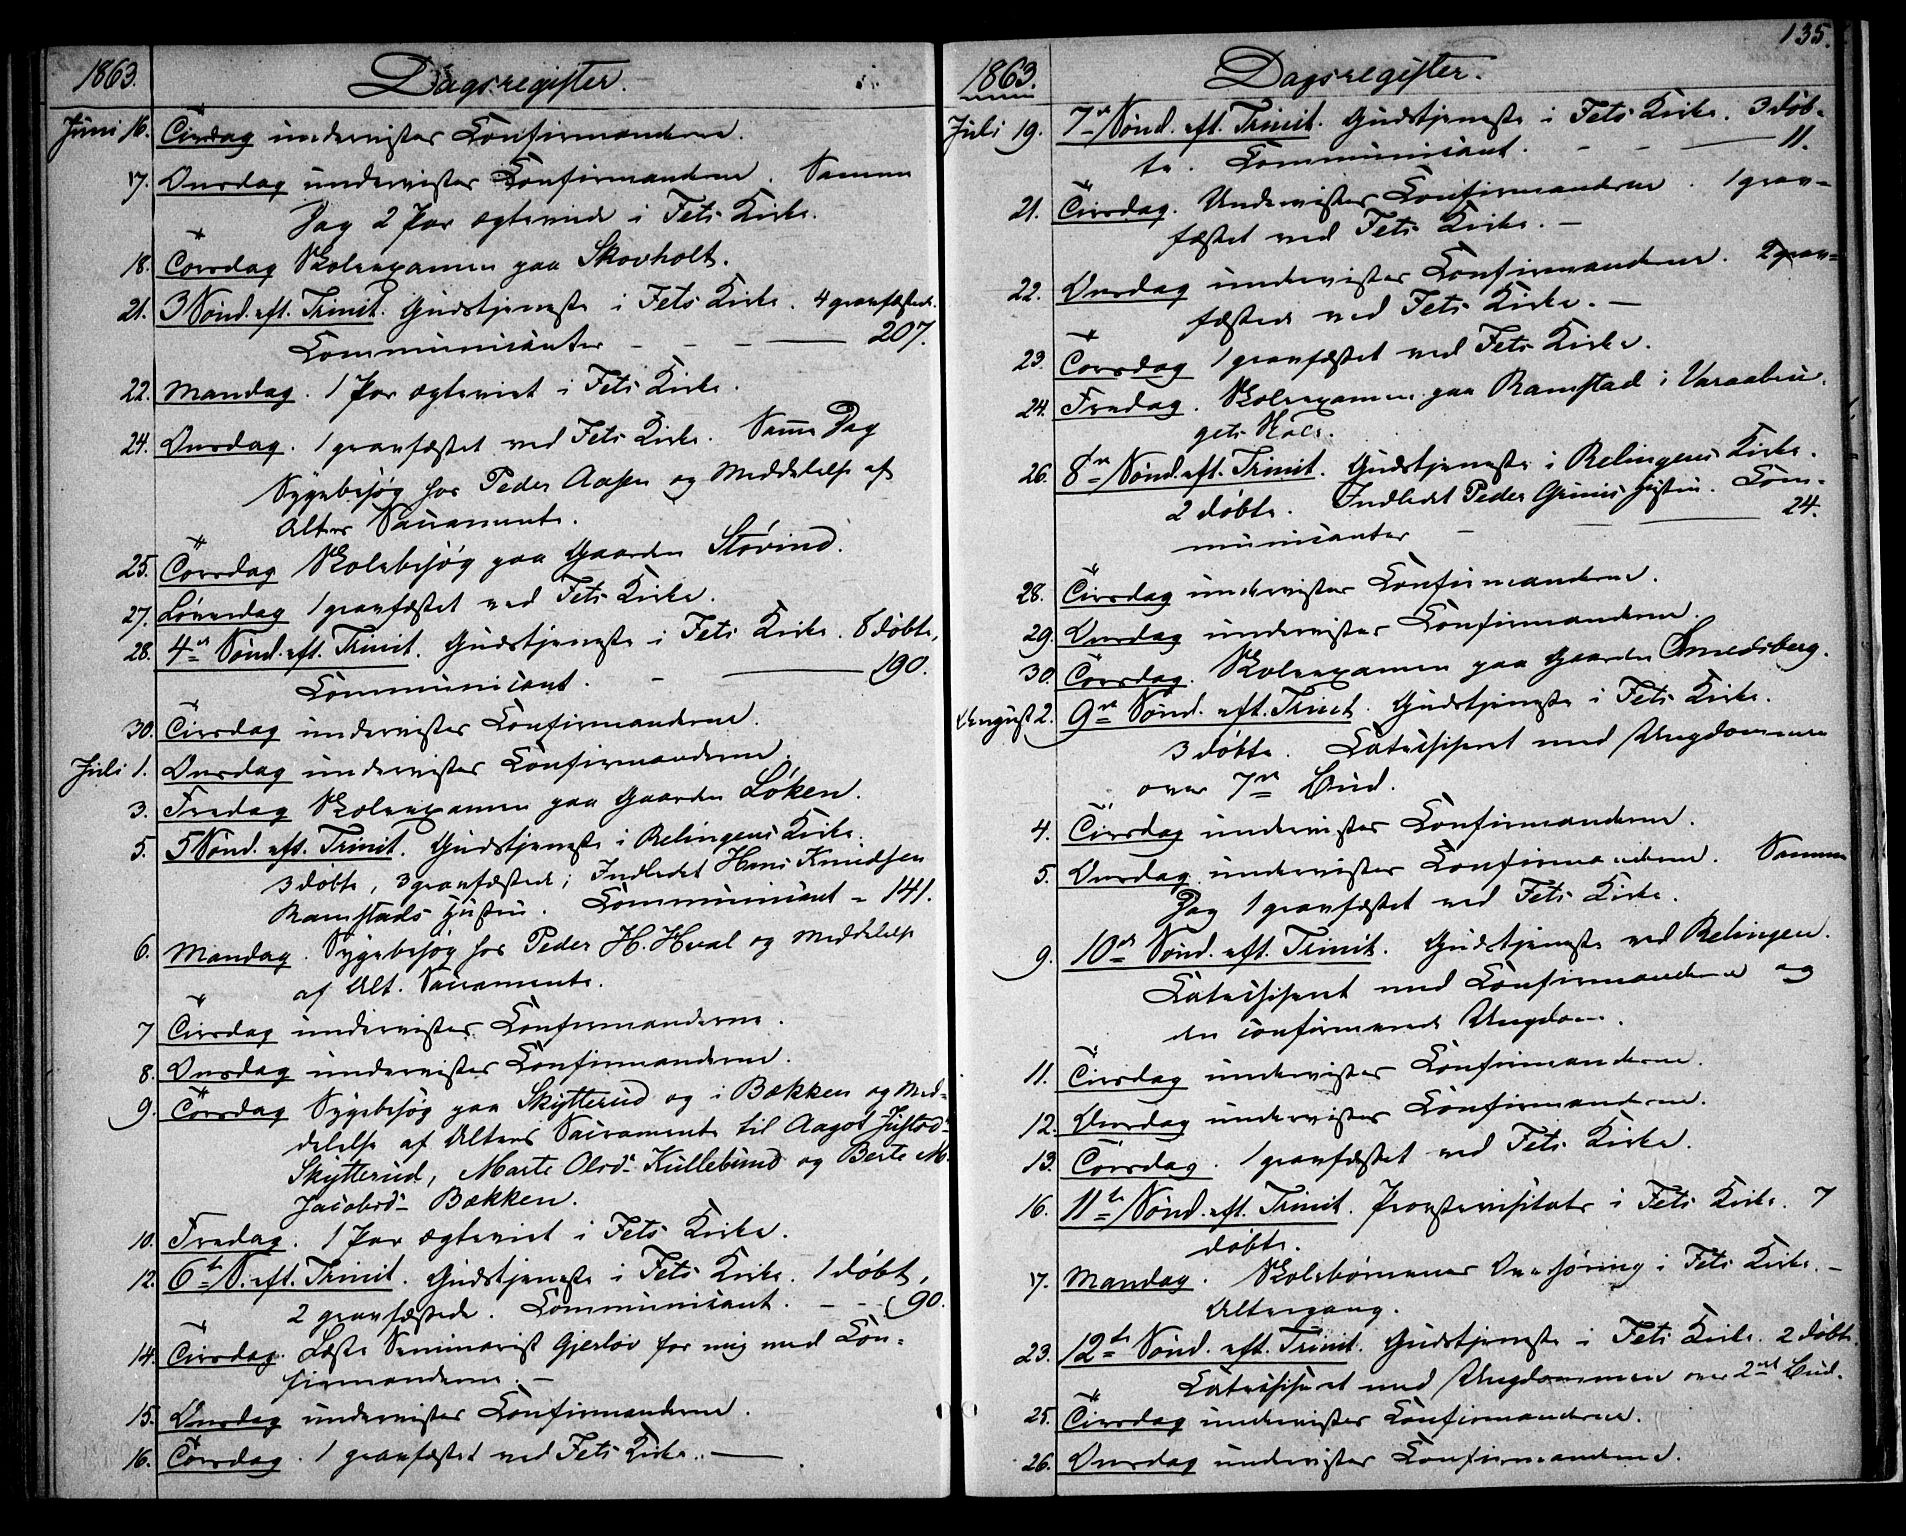 1863. Dagsregister.
Juni 16. Tirsdag undervistes Confirmanderne.
17. Onsdag undervistes Confirmanderne. Samme
Dag 2 Par ægteviede i Fets Kirke.
18. Torsdag Skoleexamen paa Skovholt.
21. 3 Sönd. eft. Trinit. Gudstjeneste i Fets Kirke. 4 gravfæstede.
Communicanter - - - — 207.
22. Mandag. 1 Par ægteviet i Fets Kirke.
24. Onsdag. 1 gravfæstet ved Fets Kirke. Samme Dag
Sygebesög hos Peder Aasen og Meddelelse af
Alters Sacramente.
25. Torsdag Skolebesög paa Gaarden Stövind.
27. Löverdag 1 gravfæstet ved Fets Kirke.
28. 4de Sönd. eft. Trinit. Gudstjeneste i Fets Kirke. 8 döbte,
Communicant. - — 190.
30. Tirsdag undervistes Confirmanderne.
Juli 1. Onsdag undervistes Confirmanderne.
3. Fredag Skoleexamen paa Gaarden Löken.
5. 5 Sönd. eft. Trinit. Gudstjeneste i Relingens Kirke.
3 döbte, 3 gravfæstede; Indledet Hans Knudsen
Ramstads Hustru. Communicant - 141.
6. Mandag. Sygebesög hos Peder H. Hval og Meddelelse
af Alt. Sacramente.
7 Tirsdag undervistes Confirmanderne.
8. Onsdag undervistes Confirmanderne.
9. Torsdag Sygebesög paa Skytterud og i Bækken og Med-
delelse af Alterens Sacramente til Aagot Justsd-
Skytterud, Marte Olsd- Kullebund og Berte M.
Jacobsd- Bækken.
10. Fredag. 1 Par ægteviet i Fets Kirke.
12. 6te S. eft. Trinit. Gudstjeneste i Fets Kirke. 1 döbt,
2 gravfæstede. Communicant. - - 190.
14. Tirsdag. Læste Seminarist Gjerlöv for mig med Con-
firmanderne. -
15. Onsdag undervistes Confirmanderne.
16. Torsdag. 1 gravfæstet ved Fets Kirke. —
135.
1863. Dagsregister.
Juli 19. 7de Sönd. eft. Trinit. Gudstjeneste i Fets Kirke. 3 döb-
te. Communicant. - - — 11.
21. Tirsdag. Undervistes Confirmanderne. 1 grav-
fæstet ved Fets Kirke. -
22. Onsdag undervistes Confirmanderne. 2 grav-
fæstede ved Fets Kirke. -
23. Torsdag 1 gravfæstet ved Fets Kirke.
24. Fredag. Skoleexamen paa Ramstad i Varaabru
gets Skole.
26. 8de Sönd. eft. Trinit. Gudstjeneste i Relingens Kirke.
2 döbte. Indledet Peder Hustru. Com-
municanter - - — 24.
28. Tirsdag undervistes Confirmanderne.
29. Onsdag undervistes Confirmanderne.
30. Torsdag. Skoleexamen paa Gaarden Smedsberg.
August 2. 9de Sönd. eft. Trinit. Gudstjeneste i Fets Kirke.
3 döbte. Catechiseret med Ungdommen
over 7de Bud.
4. Tirsdag undervistes Confirmanderne.
5. Onsdag undervistes Confirmanderne. Samme
Dag 1 gravfæstet ved Fets Kirke.
9. 10de Sönd. eft. Trinit. Gudstjeneste ved Relingen.
Catechiseret med Confirmanderne og
den confirmerede Ungdom.
11. Tirsdag undervistes Confirmanderne.
12. Onsdag undervistes Confirmanderne.
13. Torsdag. 1 gravfæstet ved Fets Kirke.
16. 11te Sönd. eft. Trinit. Provstevisitats i Fets Kirke. 7
döbte.
17. Mandag. Skolebörnenes i Fets Kirke. -
Altergang.
23. 12te Sönd. eft. Trinit. Gudstjeneste i Fets Kirke. 2 döbte
Catechiseret med Ungdommen over 2det Bud.
25. Tirsdag undervistes Confirmanderne.
26. Onsdag undervistes Confirmanderne.